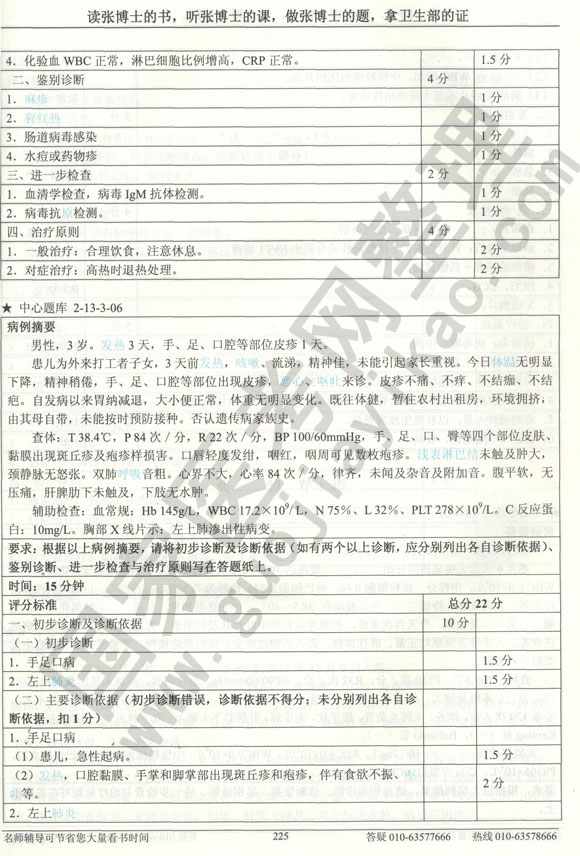 读张博士的书，听张博士的课，做张博士的题，拿卫生部的证
4．化验血 WBC 正常，淋巴细胞比例增高，CRP 正常。 1.5 分
二、鉴别诊断 4 分
1．麻疹 1 分
2．猩红热 1 分
3．肠道病毒感染 1 分
4．水痘或药物疹 1 分
三、进一步检查 2 分
1．血清学检查，病毒 IgM 抗体检测。 1 分
2．病毒抗原检测。 1 分
四、治疗原则 4 分
1．一般治疗：合理饮食，注意休息。 2 分
2．对症治疗：高热时退热处理。 2 分
★ 中心题库 2-13-3-06
病例摘要
男性，3 岁。发热 3 天，手、足、口腔等部位皮疹 1 天。
患儿为外来打工者子女，3 天前发热，咳嗽、流涕，精神佳，未能引起家长重视。今日体温无明显
下降，精神稍倦，手、足、口腔等部位出现皮疹，恶心、呕吐来诊。皮疹不痛、不痒、不结痂、不结
疤。自发病以来胃纳减退，大小便正常，体重无明显变化。既往体健，暂住农村出租房，环境拥挤，
由其母自带，未能按时预防接种。否认遗传病家族史。
查体：T 38.4℃，P 84 次／分，R 22 次／分，BP 100/60mmHg，手、足、口、臀等四个部位皮肤、
黏膜出现斑丘疹及疱疹样损害。口唇轻度发绀，咽红，咽周可见数枚疱疹。浅表淋巴结未触及肿大，
颈静脉无怒张。双肺呼吸音粗。心界不大，心率 84 次／分，律齐，未闻及杂音及附加音。腹平软，无
压痛，肝脾肋下未触及，下肢无水肿。
辅助检查：血常规：Hb 145g/L，WBC 17.2×10⁹/L，N 75%、L 32%、PLT 278×10⁹/L。C 反应蛋
白：10mg/L。胸部 X 线片示：左上肺渗出性病变。
要求：根据以上病例摘要，请将初步诊断及诊断依据（如有两个以上诊断，应分别列出各自诊断依据）、
鉴别诊断、进一步检查与治疗原则写在答题纸上。
时间：15 分钟
评分标准 总分 22 分
一、初步诊断及诊断依据 10 分
（一）初步诊断
1．手足口病 1.5 分
2．左上肺炎 1.5 分
（二）主要诊断依据（初步诊断错误，诊断依据不得分；未分别列出各自诊
断依据，扣 1 分）
1．手足口病
（1）患儿，急性起病。 1.5 分
（2）发热，口腔黏膜、手掌和脚掌部出现斑丘疹和疱疹，伴有食欲不振、呕
吐等。 2 分
2．左上肺炎
名师辅导可节省您大量看书时间 225 答疑 010-63577666 热线 010-63578666
国家医考网整理
www.guojiayikao.com